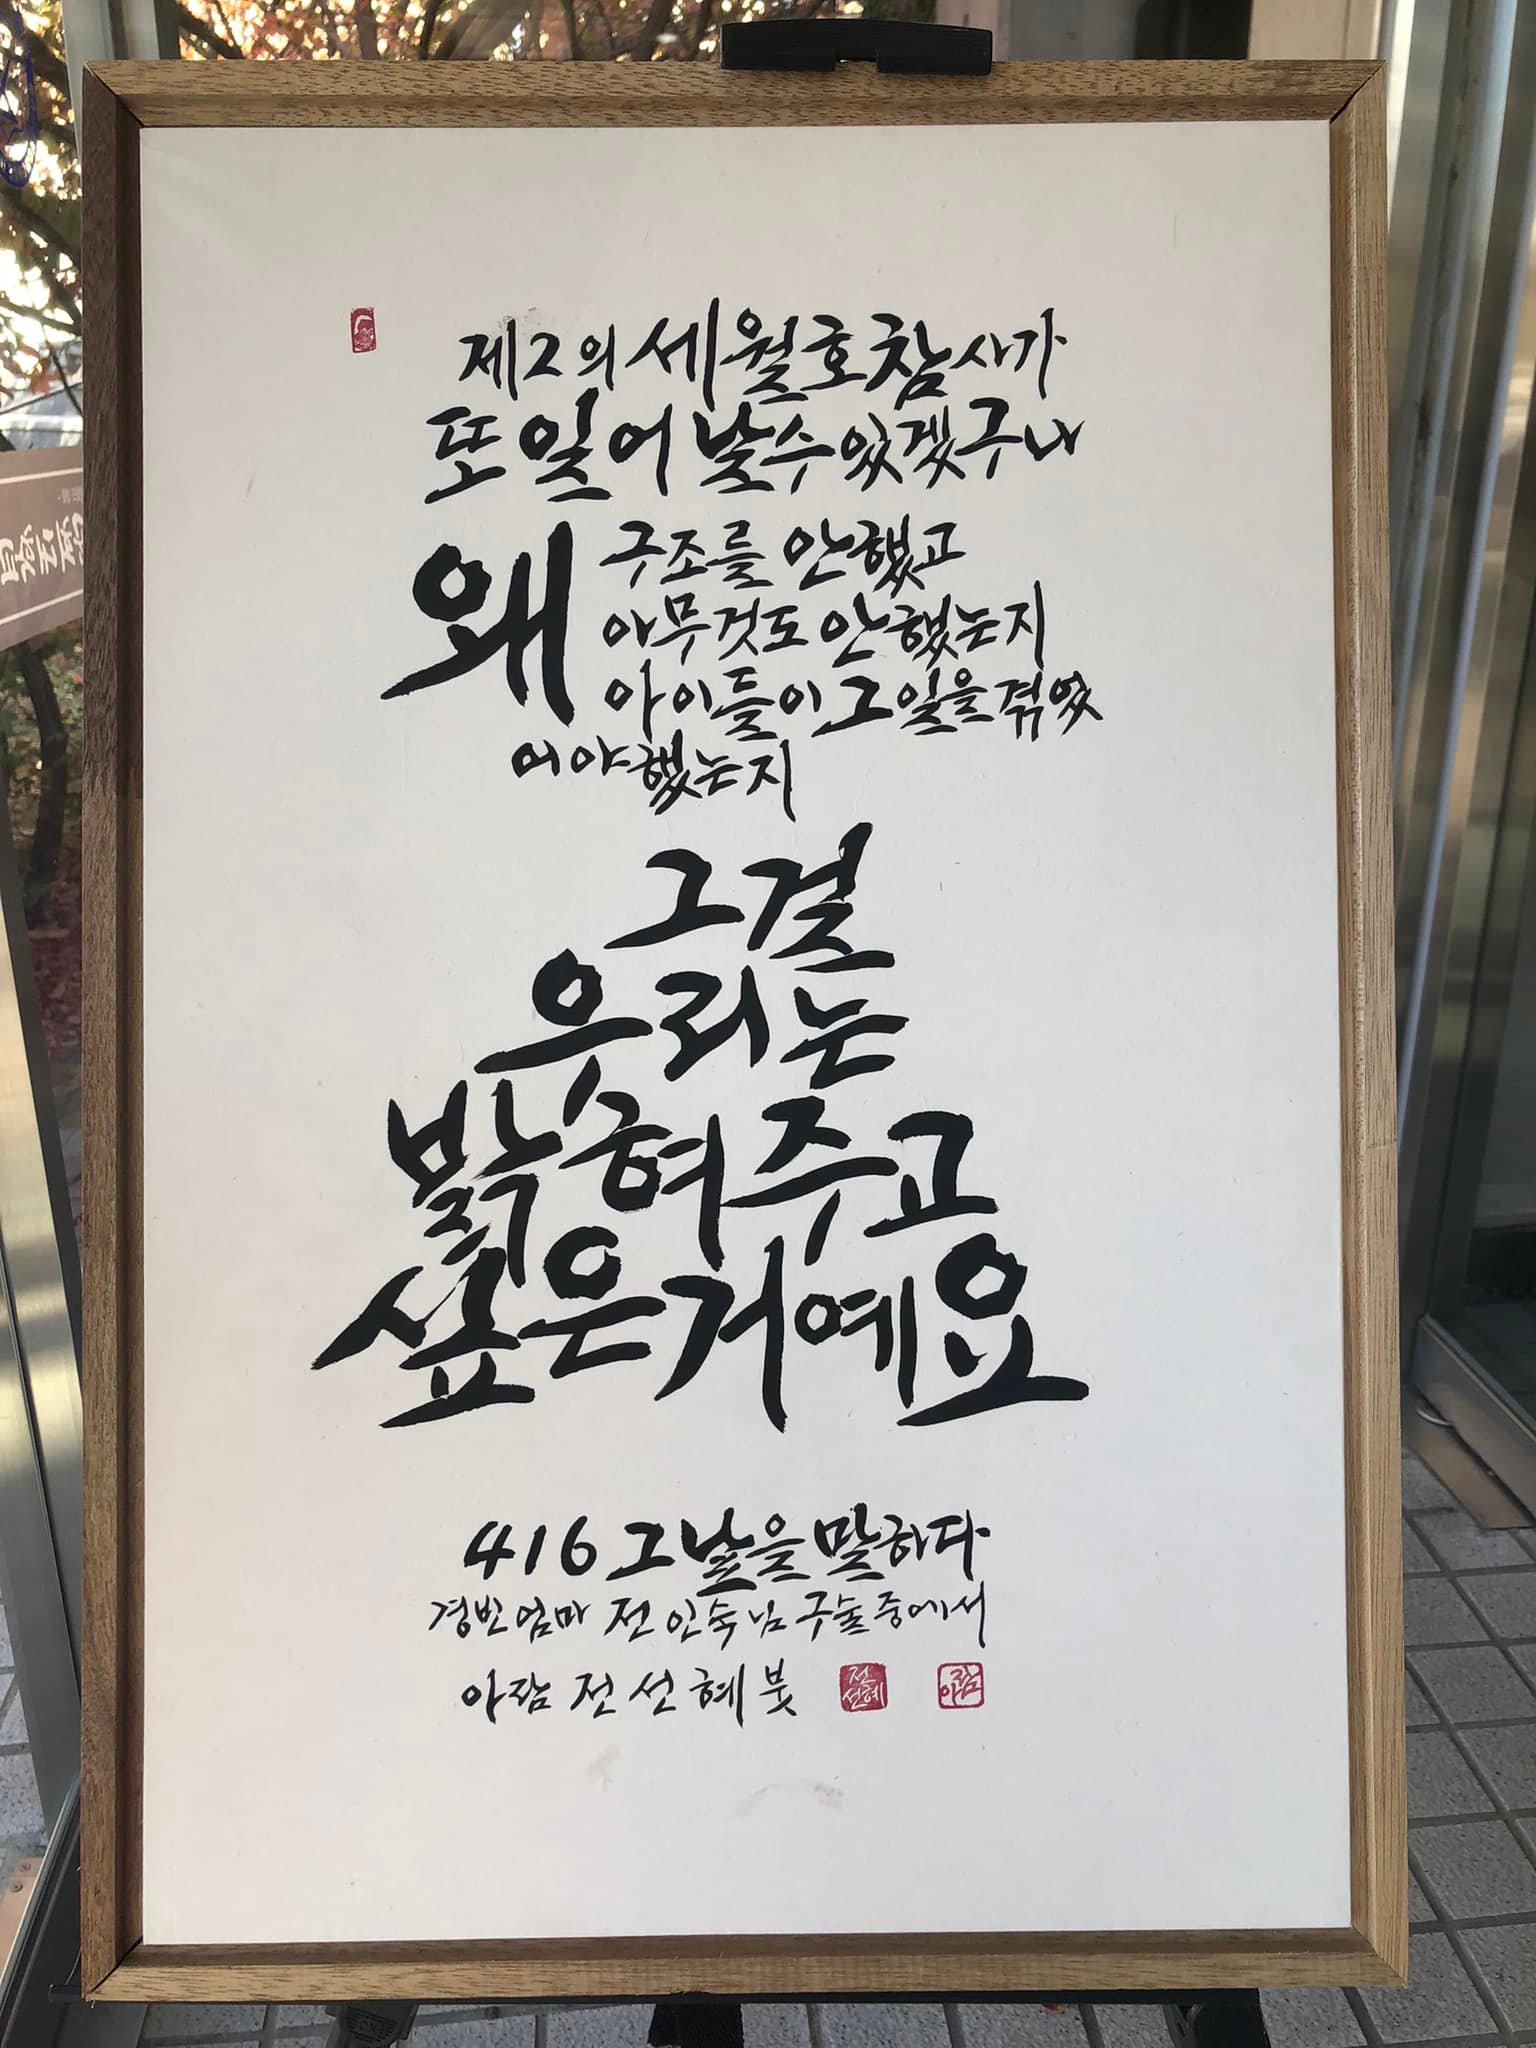 제2의 세월호 참사가
또 일어날 수 있겠구나
왜 구조를 안했고
아무것도 안했는지
아이들이 그 일을 겪었
어야 했는지
그걸
우리는
밝혀주고
싶은거예요
416 그날을 말하다
경빈엄마 전인숙님 구술 중에서
아람 전선혜 붓
전선혜